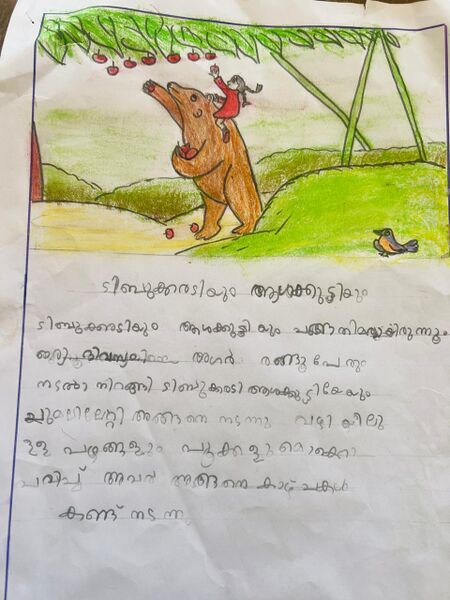 ടിങ്കുക്കരടിയും ആശക്കുട്ടിയും
ടിങ്കുക്കരടിയും ആശക്കുട്ടിയും ചങ്ങാതിമാരായിരുന്നു
ഒരു ദിവസം അവർ രണ്ടുപേരും
നടക്കാനിറങ്ങി ടിങ്കുക്കരടി ആശക്കുട്ടിയേയും
ചുമലിലേറ്റി അങ്ങനെ നടന്നു വഴിയിലു
ള്ള പഴങ്ങളും പൂക്കളുമൊക്കെ
പറിച്ച് അവർ അങ്ങനെ കാഴ്ചകൾ
കണ്ട് നടന്നു